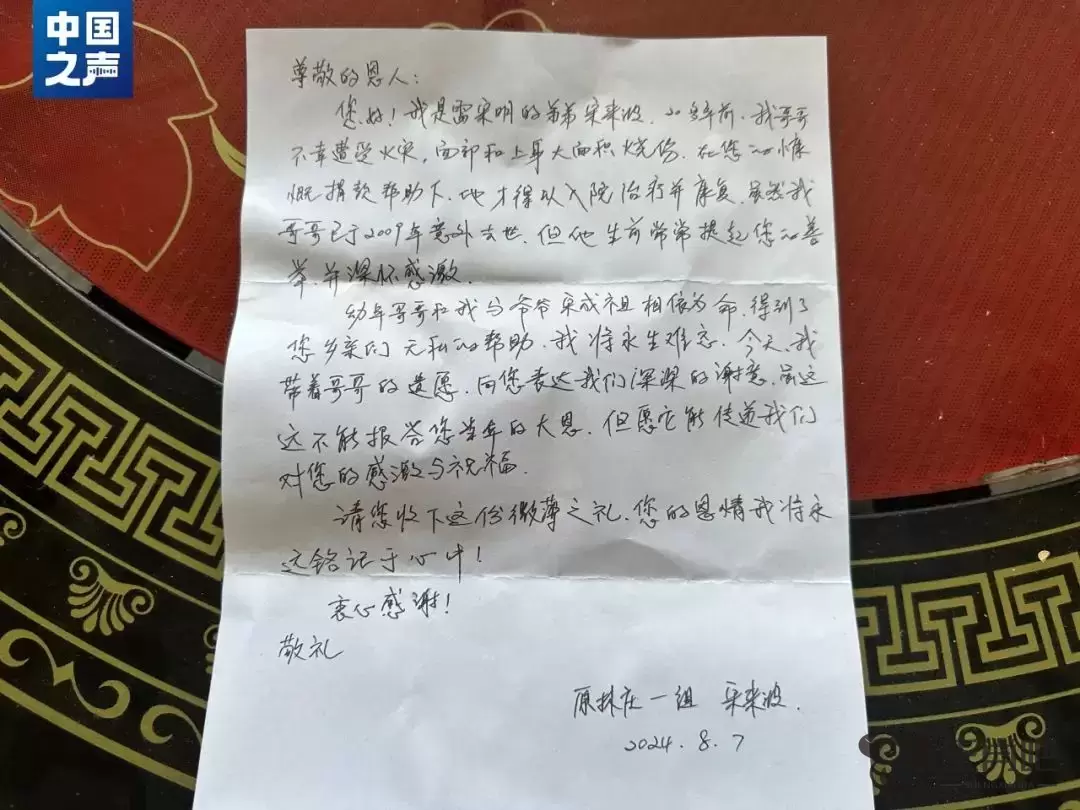 中国
之声
尊敬的恩人：
您好！我是雷宋明的弟弟宋来波，20多年前，我哥哥
不幸遭受火灾，面部和上身大面积烧伤，在您的慷
慨捐款帮助下，他才得以入院治疗并康复，虽然我
哥哥已于2009年意外去世，但他生前常常提起您的善
举，并深怀感激。
幼年哥哥和我与爷爷宋成祖相依为命，得到了
您乡亲们无私的帮助，我将永生难忘。今天，我
带着哥哥的遗愿，向您表达我们深深的谢意，虽这
这不能报答您当年的大恩，但愿它能传递我们
对您的感激与祝福。
请您收下这份微薄之礼，您的恩情我将永
远铭记于心中！
衷心感谢！
敬礼
原林庄一组 宋来波
2024.8.7